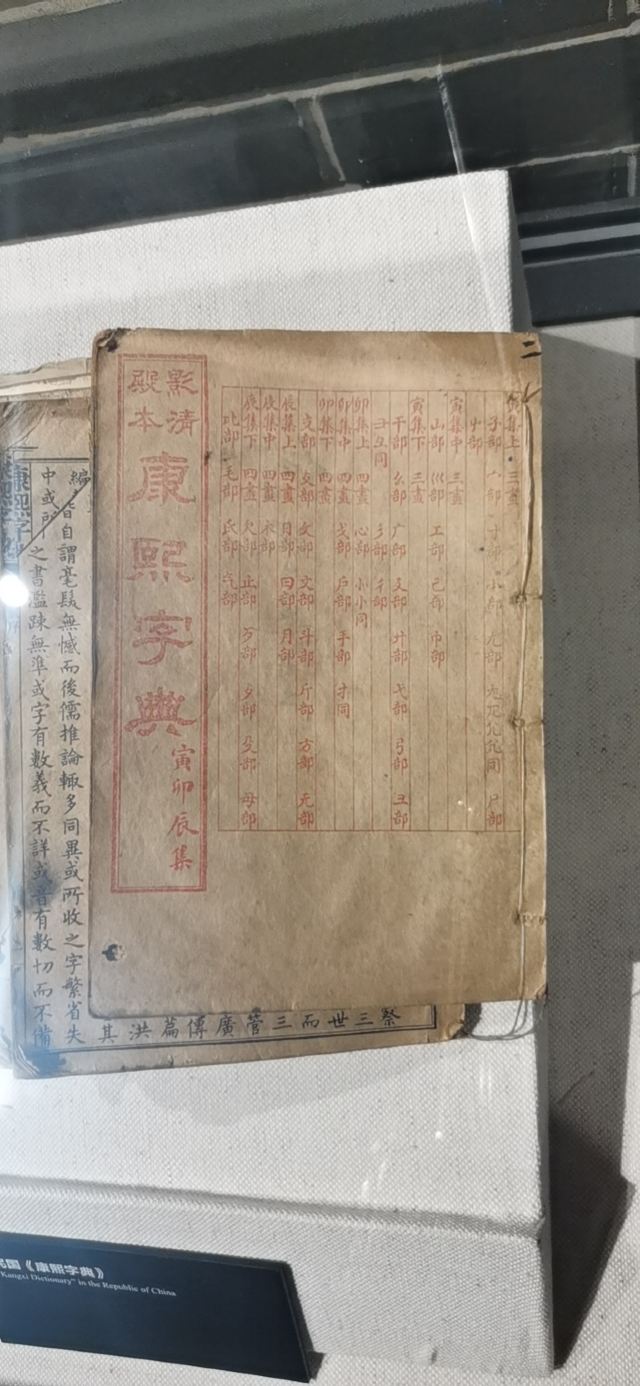 二
寅集上 三畫
子部 宀部 寸部 小部 尢部 尸部
屮部
寅集中 三畫
山部 巛部 工部 己部 巾部
寅集下 三畫
干部 幺部 广部 廴部 廾部 弋部 弓部 彐部
彐彑同 彡部 彳部
卯集上 四畫 心部 忄㣺同
卯集中 四畫 戈部 戶部 手部 扌同
卯集下 四畫
支部 攴部 文部 斗部 斤部 方部 无部
辰集上 四畫 日部 曰部 月部
辰集中 四畫 木部
辰集下 四畫 欠部 止部 歹部 歹部 殳部 毋部
比部 毛部 氏部 气部
影清
殿本
康熙字典
寅卯辰集
皆自謂毫髮無憾而後儒推論輒多同異或所收之字繁省失
中或所 之書濫疎無準或字有數義而不詳或音有數切而不備
康熙字
祭三世而三管廣傳篇洪其
民国《康熙字典》
"Kangxi Dictionary" in the Republic of China